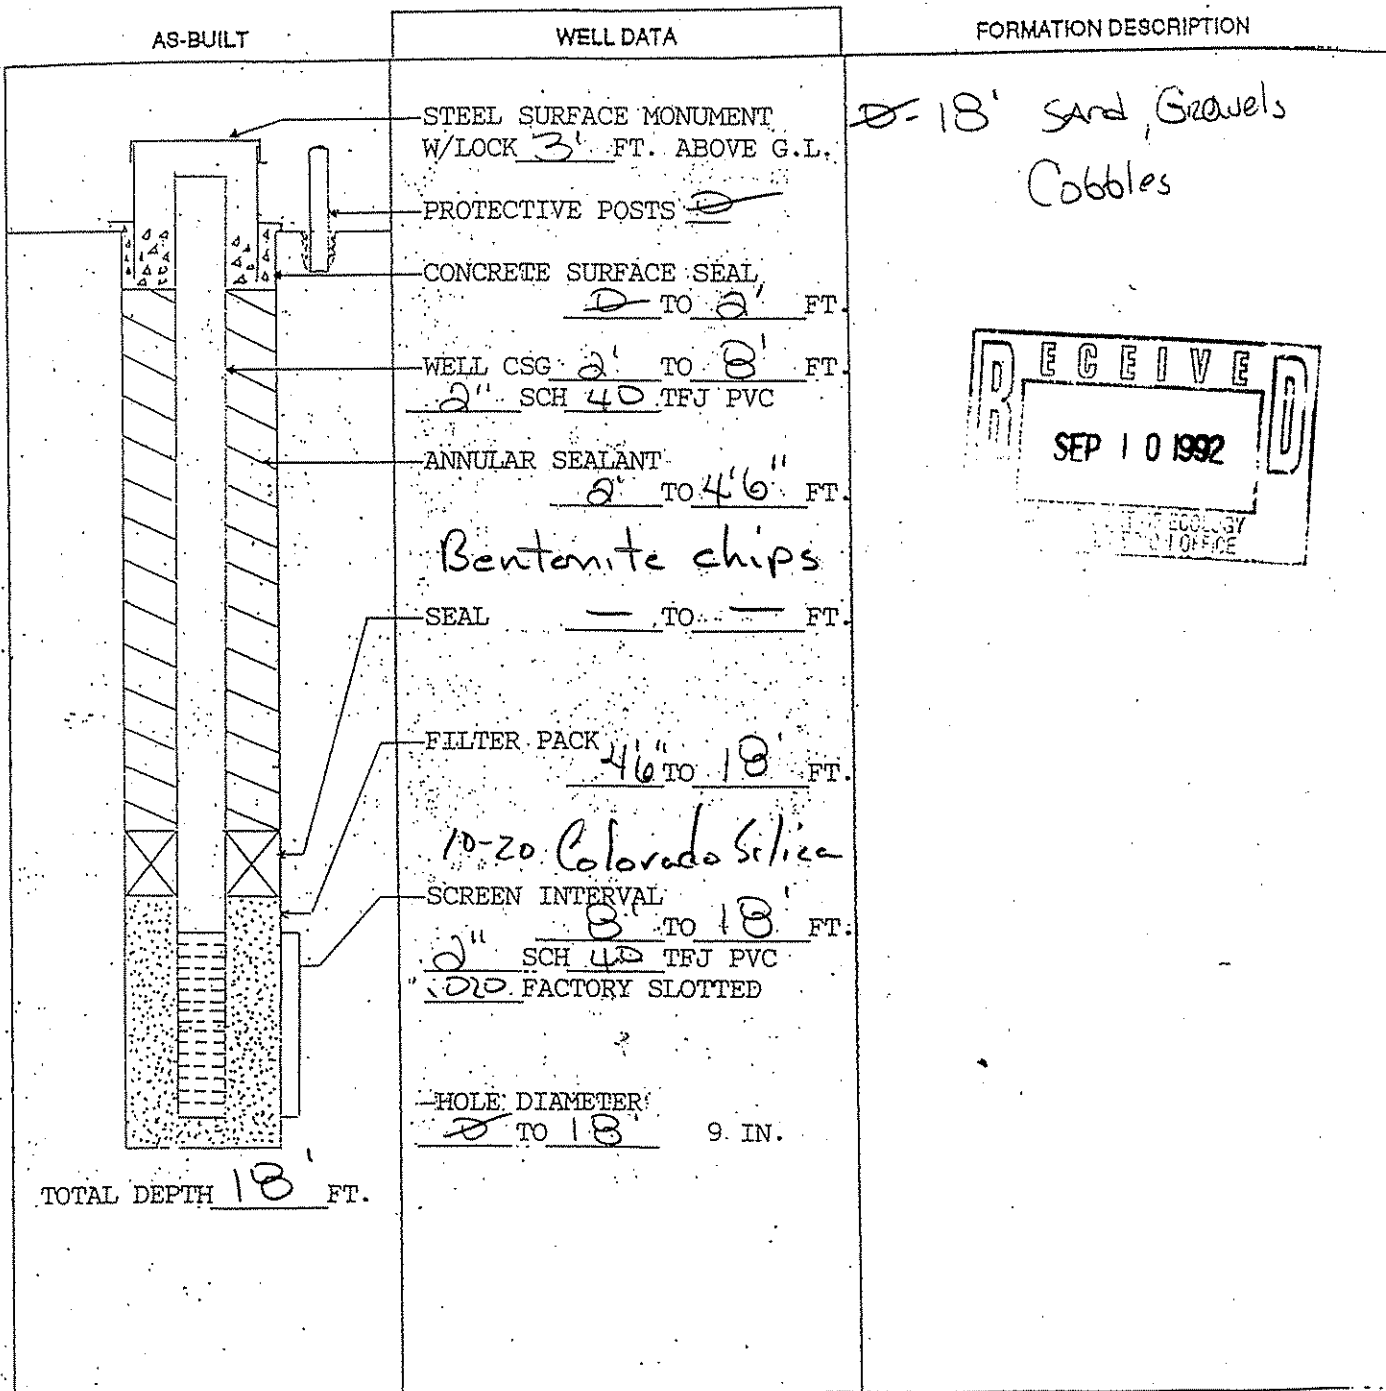 AS-BUILT
WELL DATA
FORMATION DESCRIPTION
STEEL SURFACE MONUMENT
W/LOCK 3' FT. ABOVE G.L.
PROTECTIVE POSTS 0
CONCRETE SURFACE SEAL
0 TO 2' FT.
WELL CSG 2' TO 8' FT.
2" SCH 40 TFJ PVC
ANNULAR SEALANT
2' TO 4'6" FT.
Bentonite chips
SEAL — TO — FT.
FILTER PACK
4'6" TO 18' FT.
10-20 Colorado Silica
SCREEN INTERVAL
8' TO 18' FT.
2" SCH 40 TFJ PVC
.020 FACTORY SLOTTED
HOLE DIAMETER
0 TO 18' 9 IN.
TOTAL DEPTH 18' FT.
0-18' SAnd, Gravels
Cobbles
RECEIVED
SEP 10 1992
ECOLOGY
OFFICE